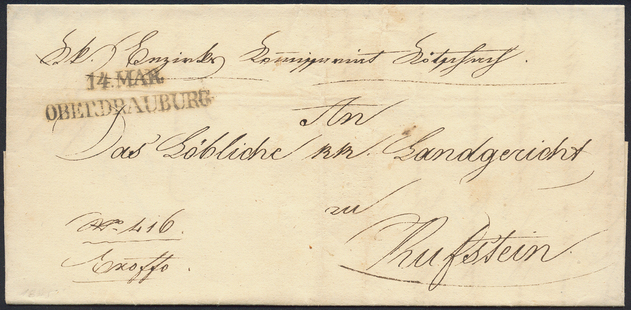 Kk. Bezirks Kommissariat Kötschach.
14. MAR.
OBERDRAUBURG.
An
Das Löbliche kk. Landgericht
zu
Kufstein.
No 416.
Exoffo.